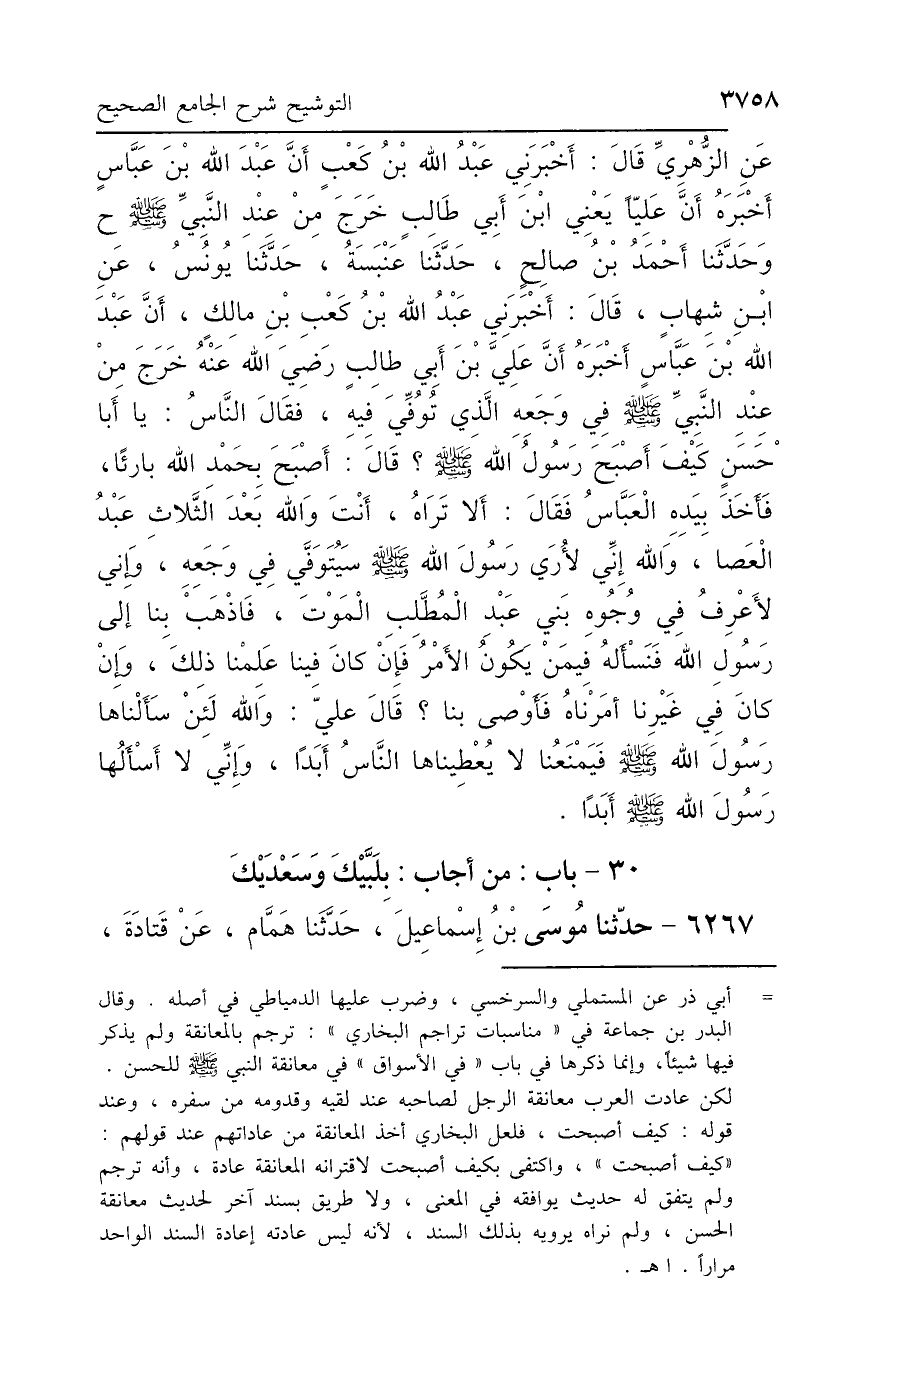 ٣٧٥٨ التوشيح شرح الجامع الصحيح
عَنِ الزُّهْرِيِّ قَالَ : أَخْبَرَنِي عَبْدُ الله بْنُ كَعْبٍ أَنَّ عَبْدَ الله بْنَ عَبَّاسٍ
أَخْبَرَهُ أَنَّ عَلِيّاً يَعْنِي ابْنَ أَبِي طَالِبٍ خَرَجَ مِنْ عِنْدِ النَّبِيِّ ﷺ ح
وَحَدَّثَنَا أَحْمَدُ بْنُ صالحٍ ، حَدَّثَنا عَنْبَسَةُ ، حَدَّثَنا يُونُسُ ، عَنِ
ابْـنِ شهابٍ ، قَالَ : أَخْبَرَنِي عَبْدُ الله بْنُ كَعْبِ بْنِ مالكٍ ، أَنَّ عَبْدَ
الله بْنَ عَبَّاسٍ أَخْبَرَهُ أَنَّ عَلِيَّ بْنَ أَبِي طالِبٍ رَضِيَ الله عَنْهُ خَرَجَ مِنْ
عِنْدِ النَّبِيِّ ﷺ فِي وَجَعِهِ الَّذي تُوُفِّيَ فِيهِ ، فقَالَ النَّاسُ : يا أَبا
حَسَنٍ كَيْفَ أَصْبَحَ رَسُولُ الله ﷺ ؟ قَالَ : أَصْبَحَ بِحَمْدِ الله بارئًا،
فَأَخَذَ بِيَدِهِ الْعَبَّاسُ فَقَالَ : أَلا تَرَاهُ ، أَنْتَ وَالله بَعْدَ الثَّلاثِ عَبْدُ
الْعَصا ، وَالله إِنِّي لأُرَي رَسُولَ الله ﷺ سَيُتَوَفَّي فِي وَجَعِهِ ، وَإِني
لأَعْرِفُ فِي وُجُوهِ بَنِي عَبْدِ الْمُطَّلِبِ الْمَوْتَ ، فَاذْهَبْ بنا إلى
رَسُولِ الله فَنَسْأَلهُ فِيمَنْ يَكُونُ الأَمْرُ فَإِنْ كانَ فينا عَلِمْنا ذلكَ ، وَإِنْ
كانَ فِي غَيْرِنا أمَرْناهُ فَأَوْصى بنا ؟ قَالَ عليّ : وَالله لَئِنْ سَأَلْناها
رَسُولَ الله ﷺ فَيَمْنَعُنا لا يُعْطِيناها النَّاسُ أَبَدًا ، وَإِنِّي لا أَسْأَلُها
رَسُولَ الله ﷺ أَبَدًا .
٣٠ – باب : من أجاب : بِلَبَّيْكَ وَسَعْدَيْكَ
٦٢٦٧ – حدّثنا مُوسَى بْنُ إِسْماعيلَ ، حَدَّثَنا هَمَّام ، عَنْ قَتادَةَ ،
= أبي ذر عن المستملي والسرخسي ، وضرب عليها الدمياطي في أصله . وقال
البدر بن جماعة في « مناسبات تراجم البخاري » : ترجم بالمعانقة ولم يذكر
فيها شيئاً، وإنما ذكرها في باب « في الأسواق » في معانقة النبي ﷺ للحسن .
لكن عادت العرب معانقة الرجل لصاحبه عند لقيه وقدومه من سفره ، وعند
قوله : كيف أصبحت ، فلعل البخاري أخذ المعانقة من عاداتهم عند قولهم :
«كيف أصبحت » ، واكتفى بكيف أصبحت لاقترانه المعانقة عادة ، وأنه ترجم
ولم يتفق له حديث يوافقه في المعنى ، ولا طريق بسند آخر لحديث معانقة
الحسن ، ولم نراه يرويه بذلك السند ، لأنه ليس عادته إعادة السند الواحد
مراراً . ا هـ .